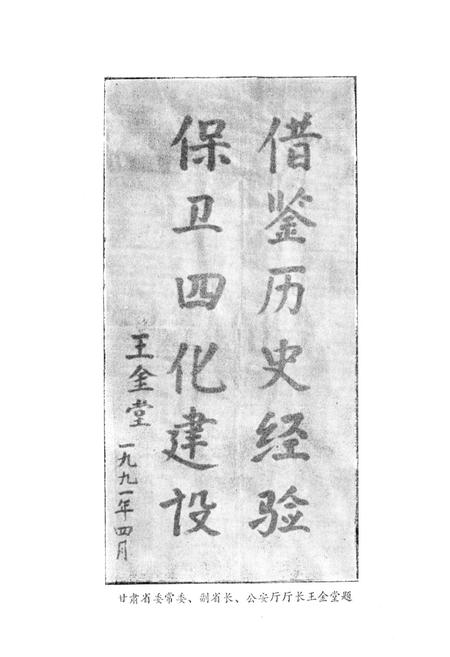 借鉴历史经验
保卫四化建设
王金堂
一九九一年四月
甘肃省委常委、副省长、公安厅厅长王金堂题